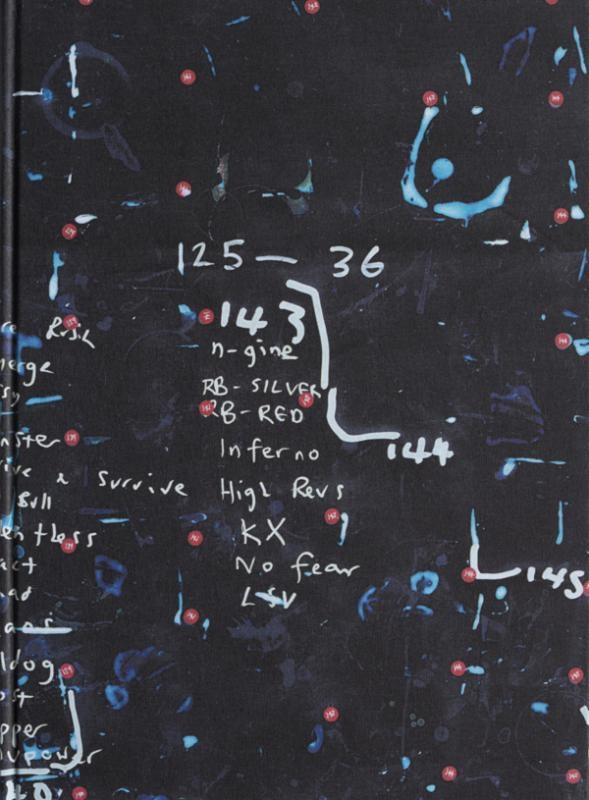 125 — 36
143
n-gine
RB-SILVER
RB-RED
Inferno
High Revs
KX
No fear
LSV
144
145
Rush
erge
nster
ive & Survive
Bull
entless
act
ldog
ost
pper
power